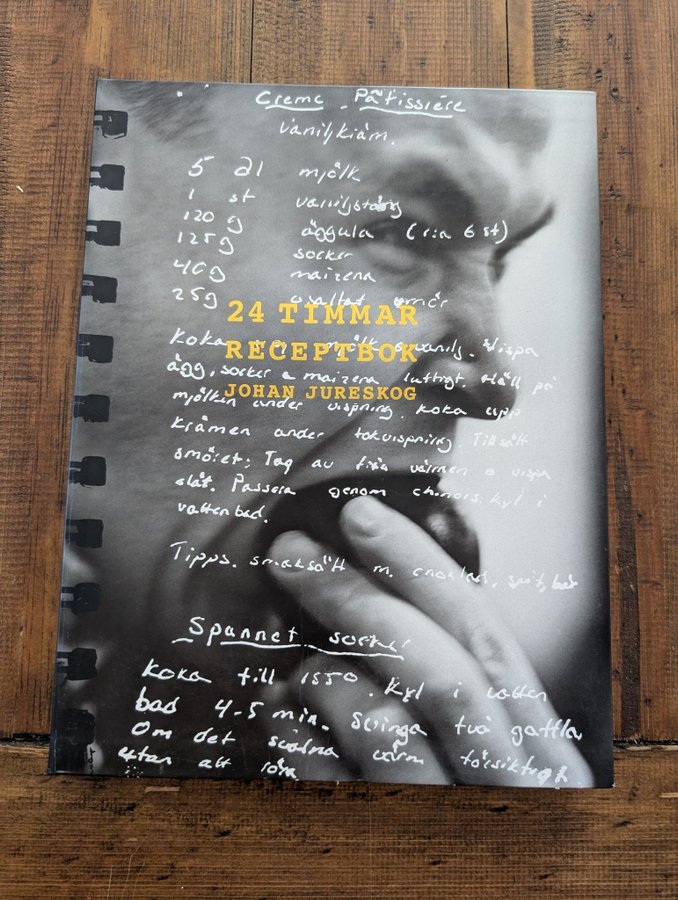 Creme Pâtissiére
Vaniljkräm.
5 dl mjölk
1 st vaniljstång
120 g äggula (ca 6 st)
125g socker
40g maizena
25g osaltat smör
24 TIMMAR
RECEPTBOK
JOHAN JURESKOG
Koka mjölk o vanilj. Vispa
ägg, socker o maizena luftigt. Häll på
mjölken under vispning. Koka upp
krämen under tokvispning. Tillsätt
smöret; Tag av från värmen o vispa
slät. Passera genom chinois. Kyl i
vattenbad.
Tipps. smaksätt m. choklad, sprit, bär
Spunnet socker
Koka till 155°. Kyl i vatten
bad 4-5 min. Svinga två gafflar
Om det svalna värm försiktigt
utan att röra